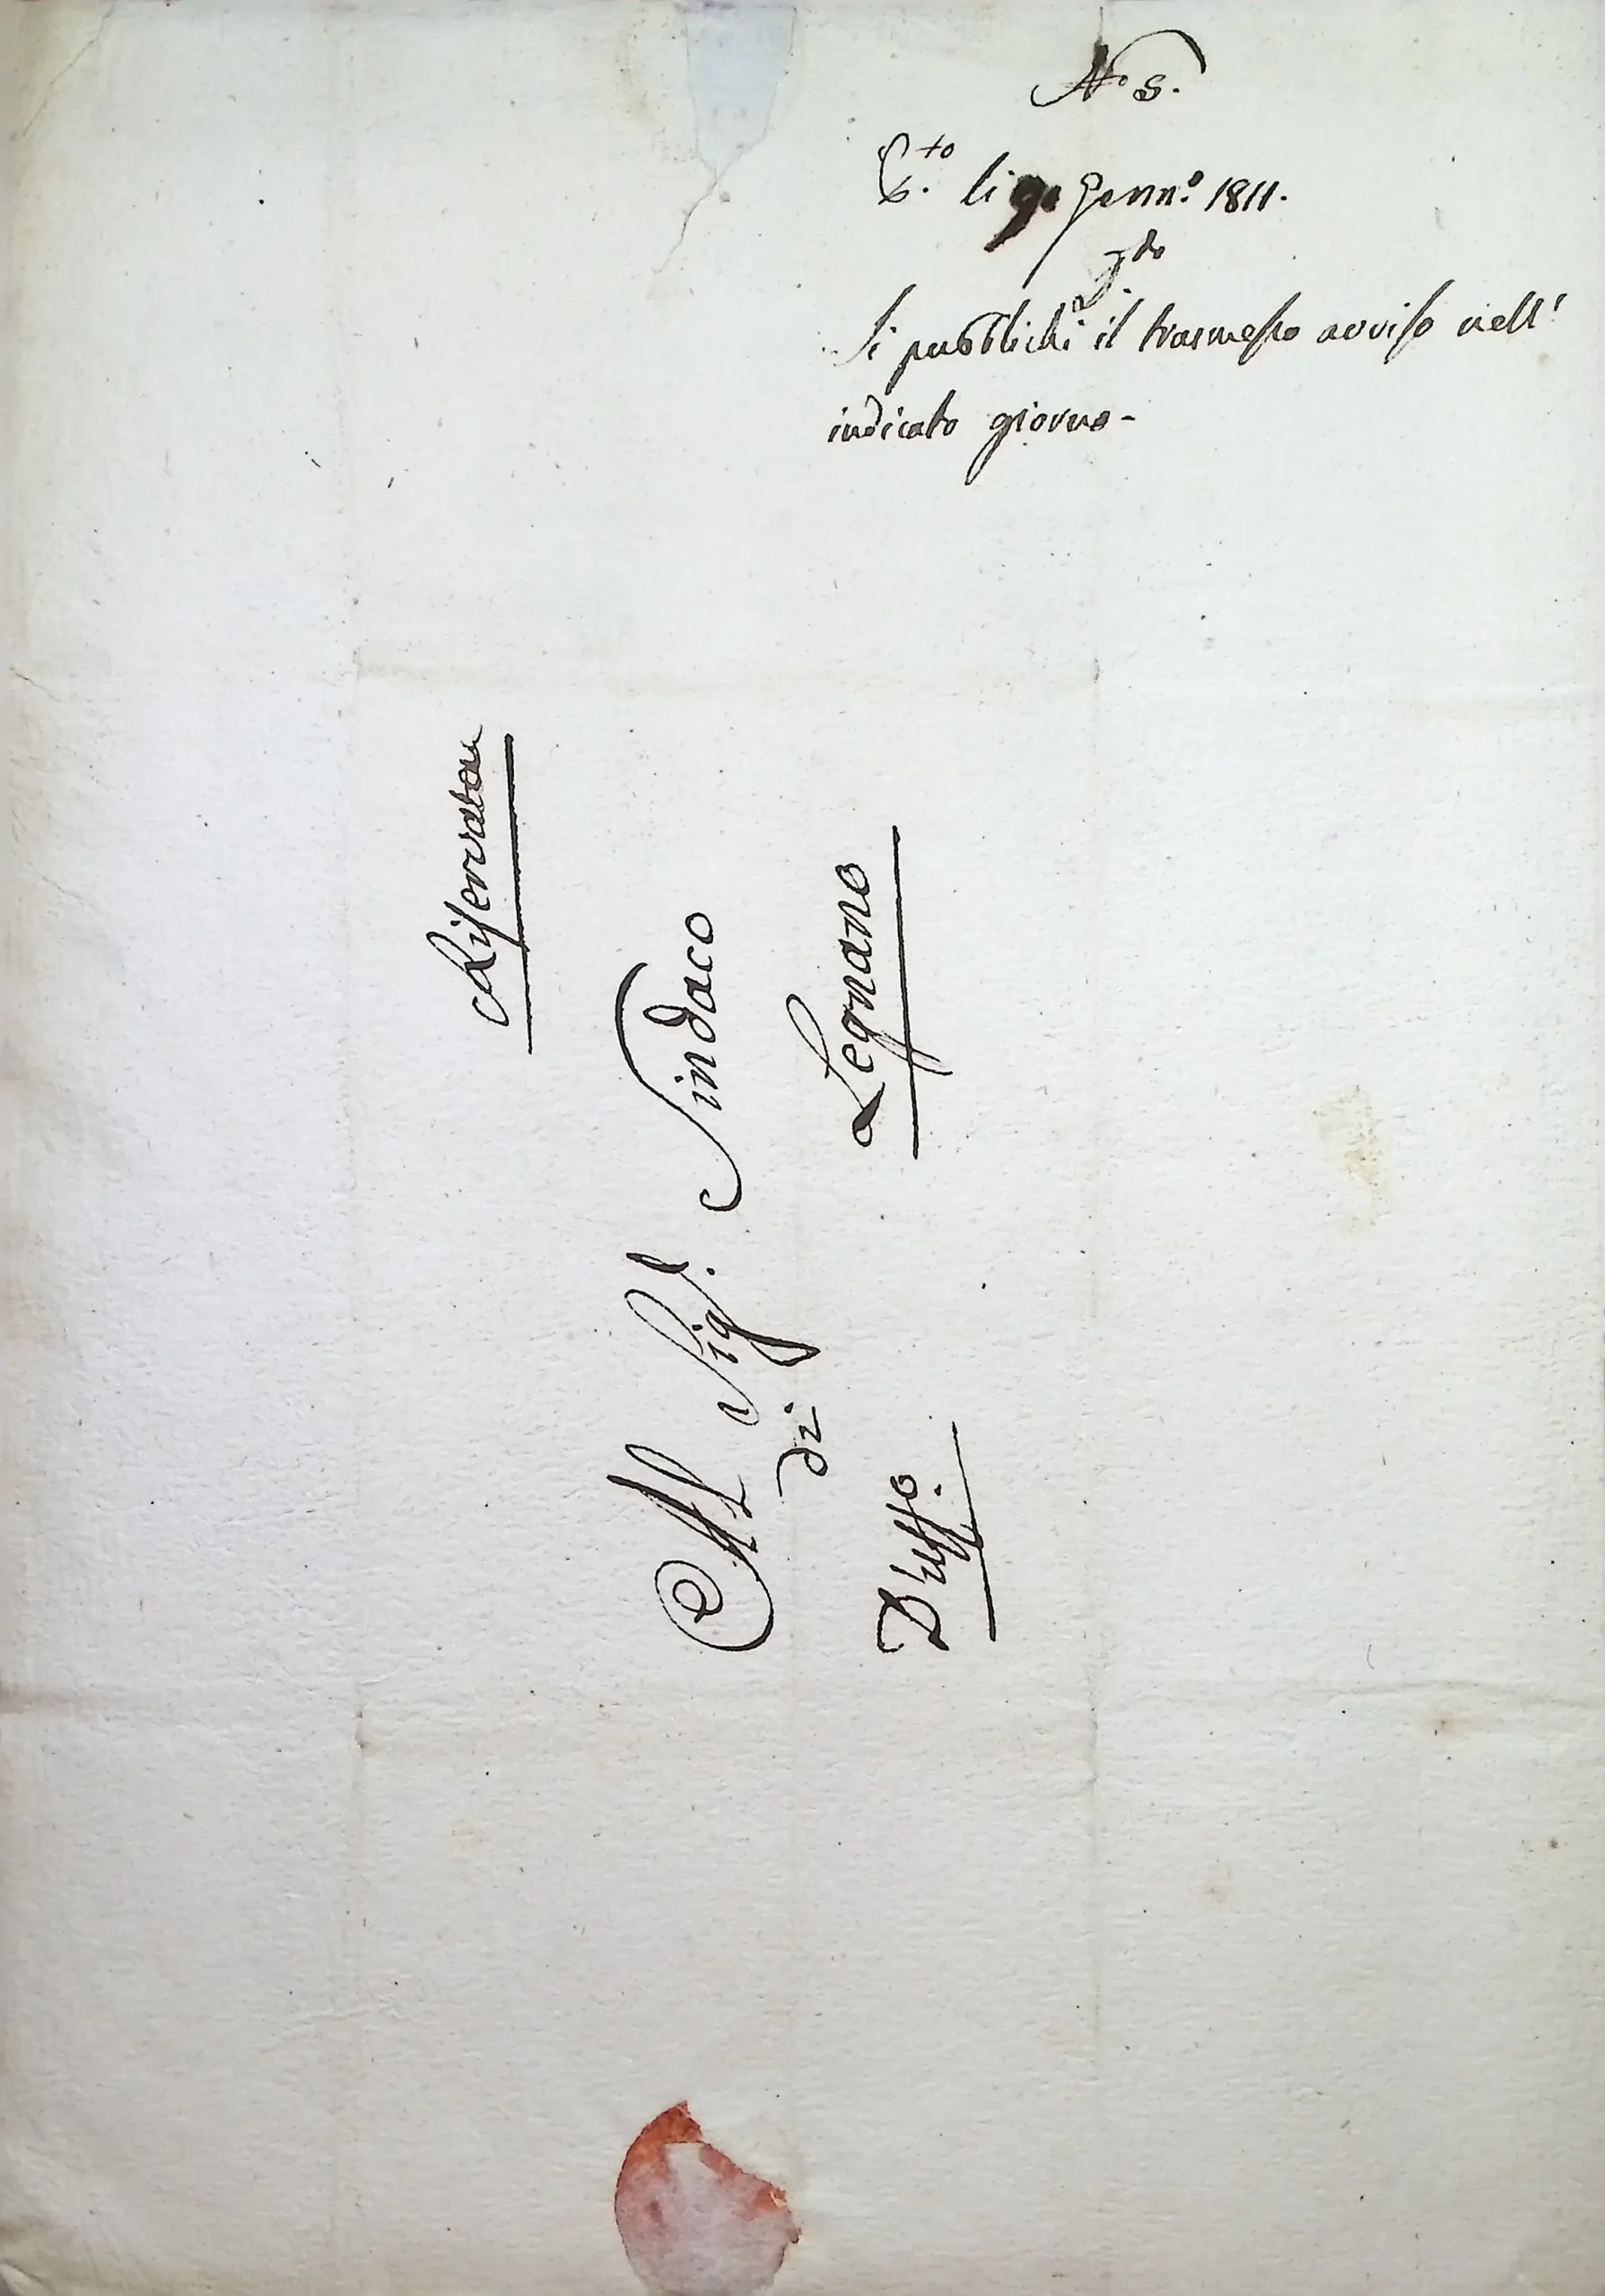 N.° 5.
li 9. Genn.° 1811.
Si pubblichi il trasmesso avviso nell'
indicato giorno-
Riservata
Al Sig.r Sindaco
di
Legnano
D'uff.o